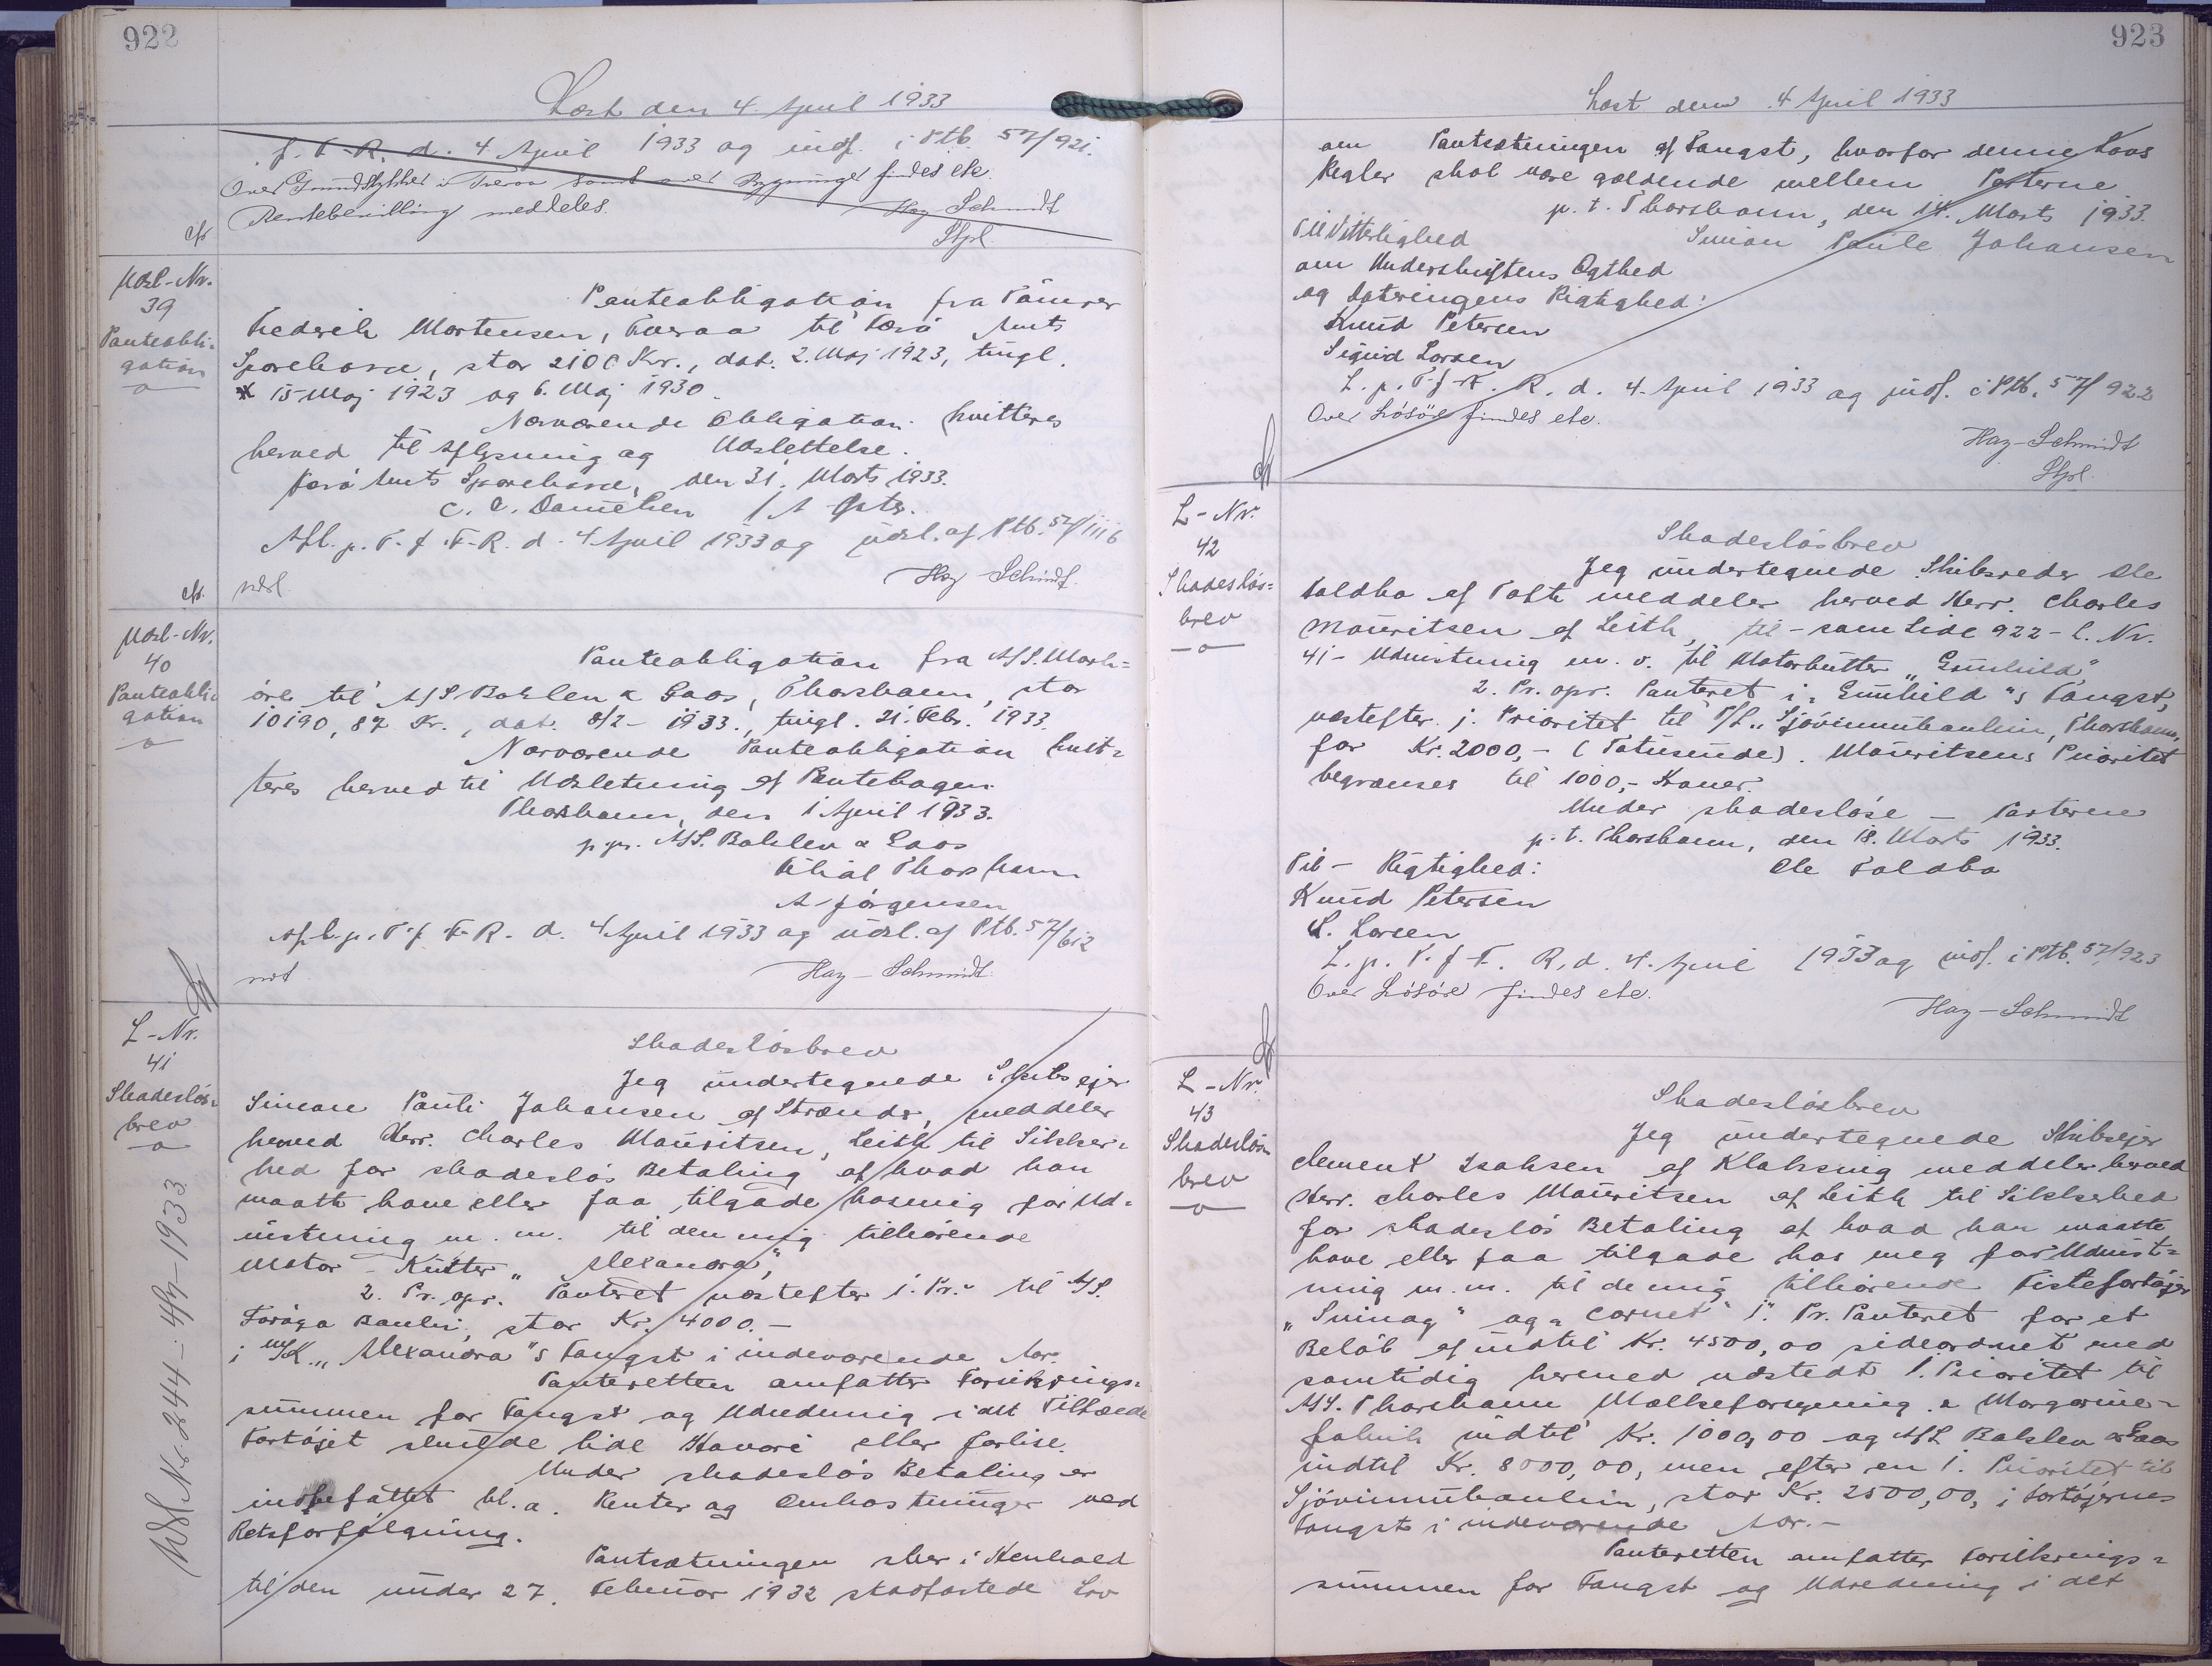 922
Læst den 4. April 1933
f. F. R. d. 4 April 1933 og indf. i Ptb. 57/921.
Over Grundstykket i Tveraa samt over Bygninger findes etc.
Rentebevilling meddeles.
Hay-Schmidt
Stpl
Udsl-Nr.
39
Panteobli-
gation
Panteobligation fra Tömrer
Frederik Mortensen, Tveraa til Færö Amts
Sparekasse, stor 2100 Kr., dat. 2. Maj 1923, tingl.
15 Maj 1923 og 6. Maj 1930.
Nærværende Obligation kvitteres
herved til Aflysning og Udslettelse.
Færö Amts Sparekasse, den 31. Marts 1933.
C. C. Danielsen
Afl. p. T. f. F. R. d. 4 April 1933 og udsl. af Ptb. 57/1116
Hay-Schmidt
ndsl.
Udsl-Nr.
40
Panteobli-
gation
Panteobligation fra A/S. Mark-
öre til A/S Balslev & Gaas, Thorshavn, stor
10190,87 Kr., dat. 8/2-1933., tingl. 21. Febr. 1933.
Nærværende Panteobligation kvit-
teres herved til Udsletning af Pantebogen.
Thorshavn, den 1 April 1933.
p. pr. A/S. Balslev & Gaas
Filial Thorshavn
A. Jörgensen
Afl. p. T. f. F. R. d. 4 April 1933 og udsl. af Ptb. 57/612
Hay-Schmidt
L-Nr.
41
Skadeslös-
brev
Skadeslösbrev
Jeg undertegnede Skibsejer
Simon Pauli Johansen af Strænder, meddeler
herved Herr. Charles Mauritsen, Leith til Sikker-
hed for skadeslös Betaling af hvad han
maatte have eller faa tilgode hos mig for Ud-
rustning m. m. til den mig tilhörende
Motor-Kutter „Alexandra",
2. Pr. opr. Panteret næstefter 1. Pr. til A/S.
Föroya Banki, stor Kr. 4000.-
i M/K. „Alexandra"s Fangst i indeværende Aar.
Panteretten omfatter Forsikrings-
summen for Fangst og Udredning i det Tilfælde
Fartöjet skulde lide Havari eller forlise.
Under skadeslös Betaling er
indbefattet bl. a. Renter og Omkostninger ved
Retsforfölgning.
Pantsætningen sker i Henhold
til den under 27. Februar 1932 stadfæstede Lov
Udsl. Nr. 244 - 4/7-1933
923
Læst den 4 April 1933
om Pantsætningen af Fangst, hvorfor denne Lovs
Regler skal være gældende mellem Parterne
p. t. Thorshavn, den 14. Marts 1933.
Til Vitterlighed
Simon Paule Johansen
om Underskriftens Ægthed
og Dateringens Rigtighed:
Knud Petersen
Sigurd Larsen
L. p. T. f. F. R. d. 4 April 1933 og indf. i Ptb. 57/922
Over Lösöre findes etc.
Hay-Schmidt
Stpl.
L-Nr.
42
Skadeslös-
brev
Skadeslösbrev
Jeg undertegnede Skibsreder Ole
Foldbo af Tofte meddeler herved Herr. Charles
Mauritsen af Leith, til - som Side 922 - L. Nr.
41 - Udrustning m. v. til Motorkutter „Gunhild",
2. Pr. opr. Panteret i „Gunhild"s Fangst,
næstefter 1. Prioritet til P/L. „Sjóvinnubankin, Thorshavn,
for Kr. 2000,- (Totusunde). Mauritsens Prioritet
begrænses til 1000,- Kroner.
Under skadeslöse - Parterne
p. t. Thorshavn, den 18. Marts 1933.
Til - Rigtighed:
Ole Foldbo
Knud Petersen
S. Larsen
L. p. T. f. F. R. d. 4. April 1933 og indf. i Ptb. 57/923
Over Lösöre findes etc.
Hay-Schmidt
L-Nr.
43
Skadeslös-
brev
Skadeslösbrev
Jeg undertegnede Skibsejer
Clement Isaksen af Klaksvig meddeler herved
Herr. Charles Mauritsen af Leith til Sikkerhed
for skadeslös Betaling af hvad han maatte
have eller faa tilgode hos mig for Udrust-
ning m. m. til de mig tilhörende Fiskefartöjer
„Suinag" og „Cornet" 1. Pr. Panteret for et
Belöb af indtil Kr. 4500,00 sideordnet med
samtidig hermed udstedt 1. Prioritet til
A/S. Thorshavn Mælkeforsyning & Margarine-
fabrik indtil Kr. 1000,00 og A/S Balslev & Gaas
indtil Kr. 8000,00, men efter en 1. Prioritet til
Sjóvinnubankin, stor Kr. 2500,00, i Fartöjernes
Fangst i indeværende Aar.-
Panteretten omfatter Forsikrings-
summen for Fangst og Udredning i det